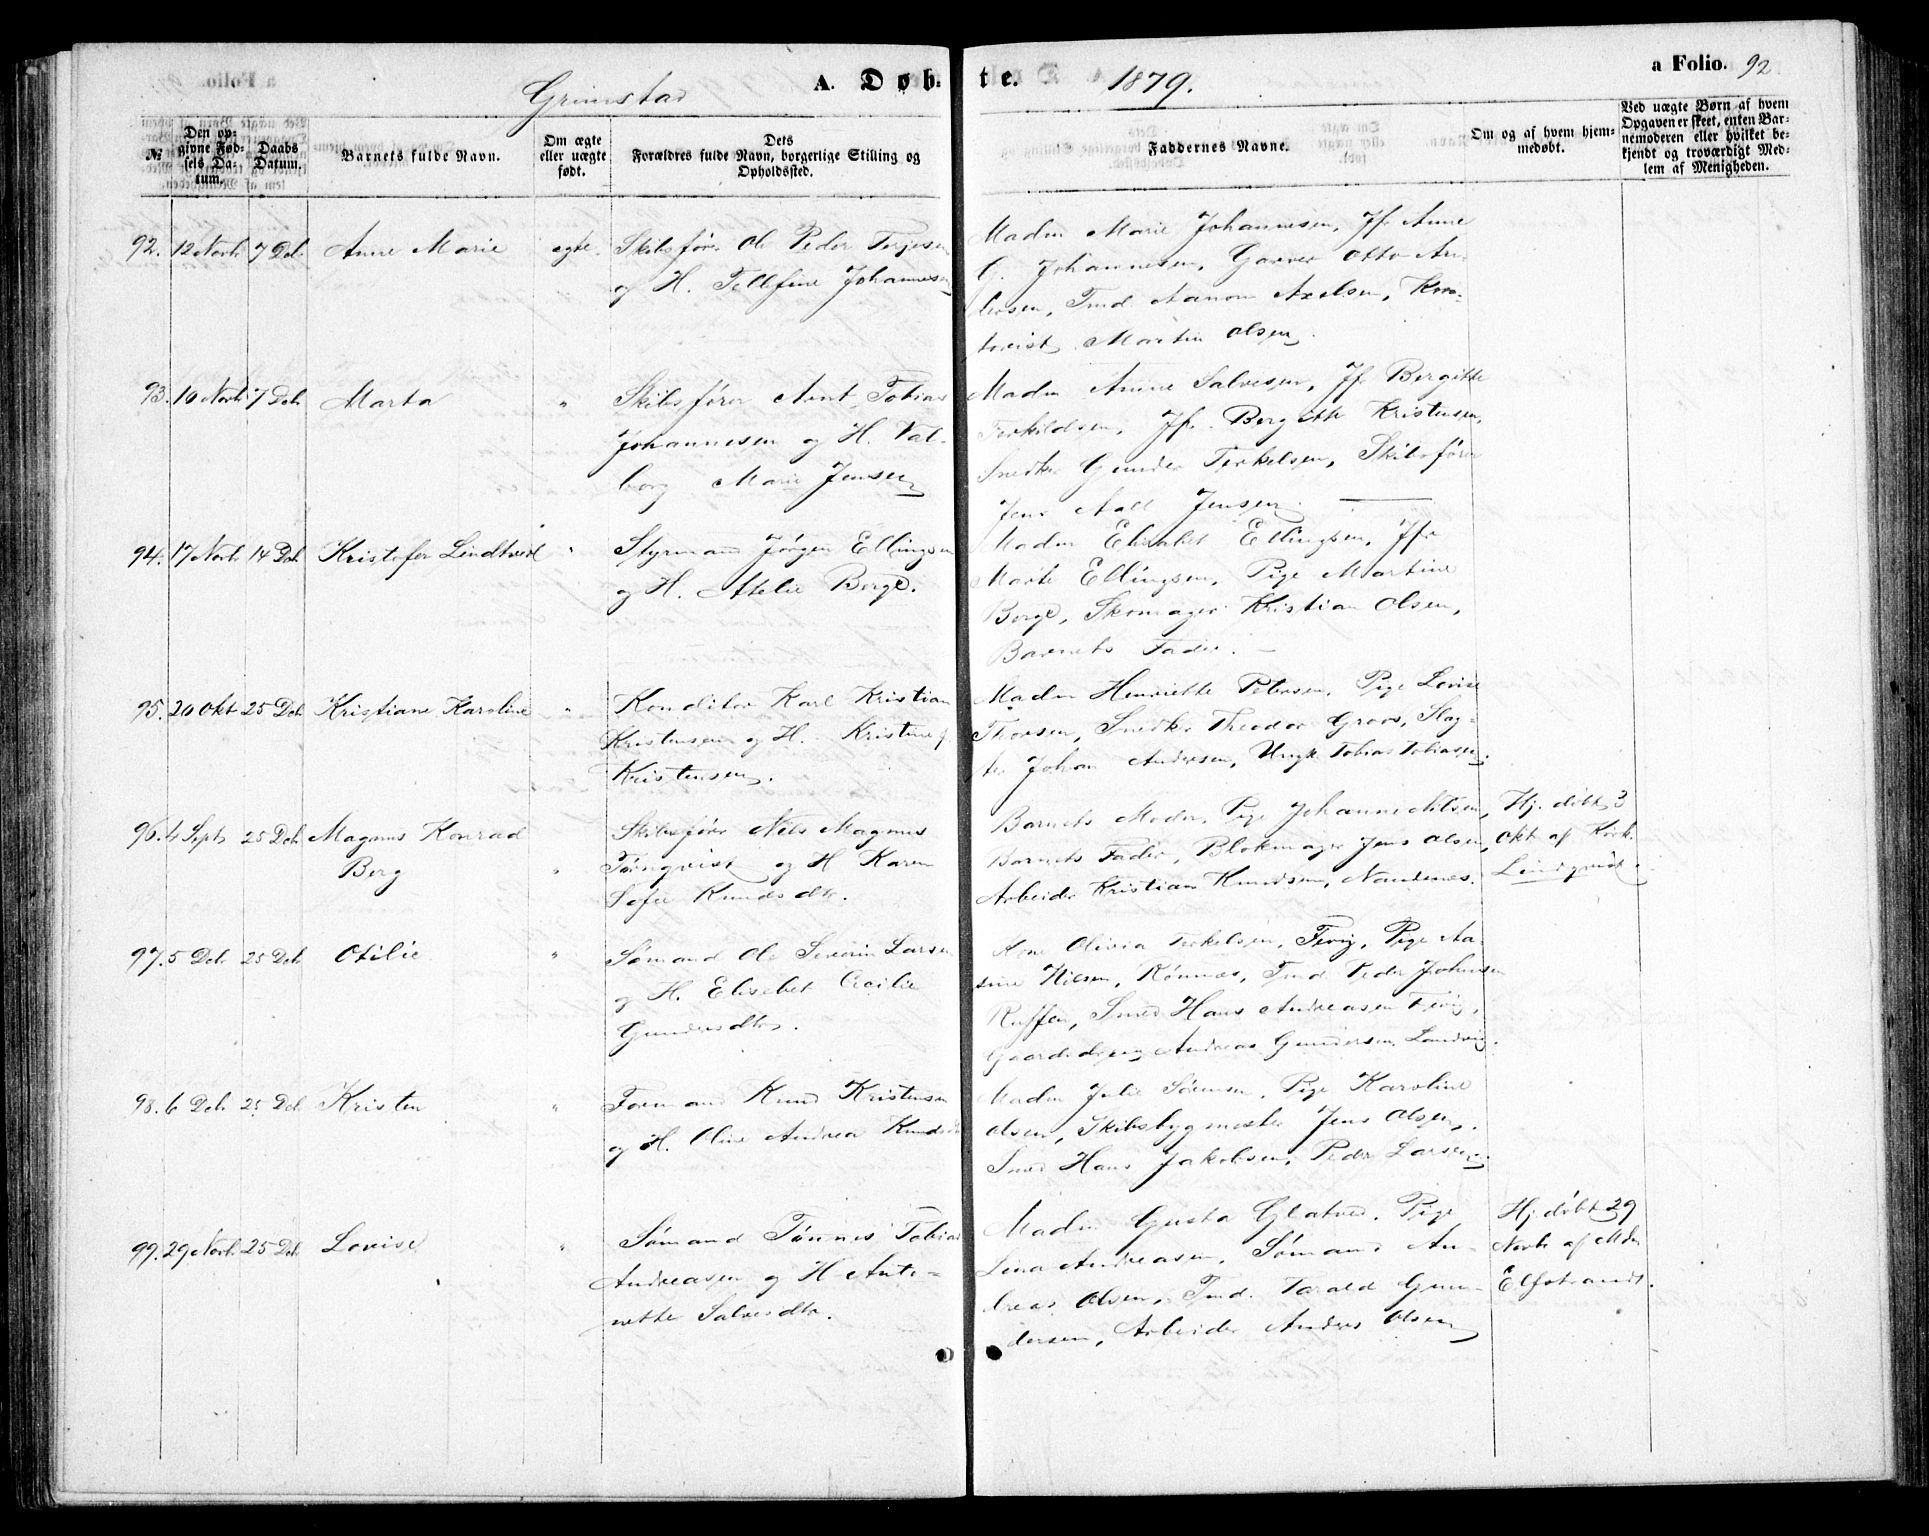 a Folio. 92
Grimstad A. Døb- te. 1879.
№ Den opgivne Fødsels Datum. Daabs Datum. Barnets fulde Navn. Om ægte eller uægte født. Dets Forældres fulde Navn, borgerlige Stilling og Opholdssted. Faddernes Navne. Om og af hvem hjemmedøbt. Ved uægte Børn af hvem Opgaven er skeet, enten Barnemoderen eller hvilket bekjendt og troværdigt Medlem af Menigheden.
92. 12 Novb 7 Deb Anne Marie ægte. Skibsfører Ole Peder Terjesen
og H. Tellefine Johannesen
Madm Marie Johannesen, Jfr Anne
G. Johannesen, Garver Otto An-
dersen, Tmd. Aanon Axelsen, Kon-
torist Martin Olsen.
93. 10 Novb 7 Deb Marta " Skibsfører Arnt Tobias
Johannesen og H. Val-
borg Marie Jensen
Madm Anne Salvesen, Jfr Bergitte
Terkildsen, Jfr. Bergitte Kristensen,
Snedker Gunder Terkelsen, Skibsfører
Jens Aall Jensen.
94. 17 Novb 14 Deb Kristofer Lindtveid " Styrmand Jørgen Ellingsen
og H. Atelie Berge.
Madm Elisabet Ellingsen, Jfr
Marte Ellingsen, Pige Martine
Berge, Skomager Kristian Olsen,
Barnets Fader.
95. 20 Okt 25 Deb Kristiane Karoline " Konditor Karl Kristian
Kristensen og H. Kristine
Kristensen.
Madm Henriette Petersen, Pige Lovise
Thorsen, Snedker Theodor Groos, Slag-
ter Johan Andersen, Ungk. Tobias Tobiasen.
96. 4 Sept 25 Deb Magnus Konrad
Berg " Skibsfører Nils Magnus
Tørnqvist og H Karen
Sofie Knudsdtr.
Barnets Moder, Pige Johanne Nilsen,
Barnets Fader, Blokmager Jens Olsen,
Arbeider Kristian Knudsen, Nandenes.
Hj. døbt 3
Okt af Kirk.
Lindqvist.
97. 5 Deb 25 Deb Otilie " Sømand Ole Severin Larsen
og H. Elisabet Cecilie
Gundersdtr.
Kone Olivia Terkelsen, Fevig, Pige Aa-
sine Nilsen, Rønnes, Tmd. Peder Johnsen
Smed Hans Andreasen Fevig,
Andreas Gundersen, Landvig.
98. 6 Deb 25 Deb Kristen " Formand Knud Kristensen
og H. Oline Andrea Knudsdtr
Madm Julie Sørensen, Pige Karoline
Olsen, Skibsbygmester Jens Olsen,
Smed Hans Jakobsen, Peder Larsen.
99. 29 Novb 25 Deb Lovise " Sømand Tønnes Tobias
Andreasen og H Anto-
nette Salvesdtr.
Madm Gusta Glatved, Pige
Lina Andreasen, Sømand An-
dreas Olsen, Tmd. Tarald Gun-
dersen, Arbeider Anders Olsen
Hj. døbt 29
Novb af Mdm
Elfstrand.